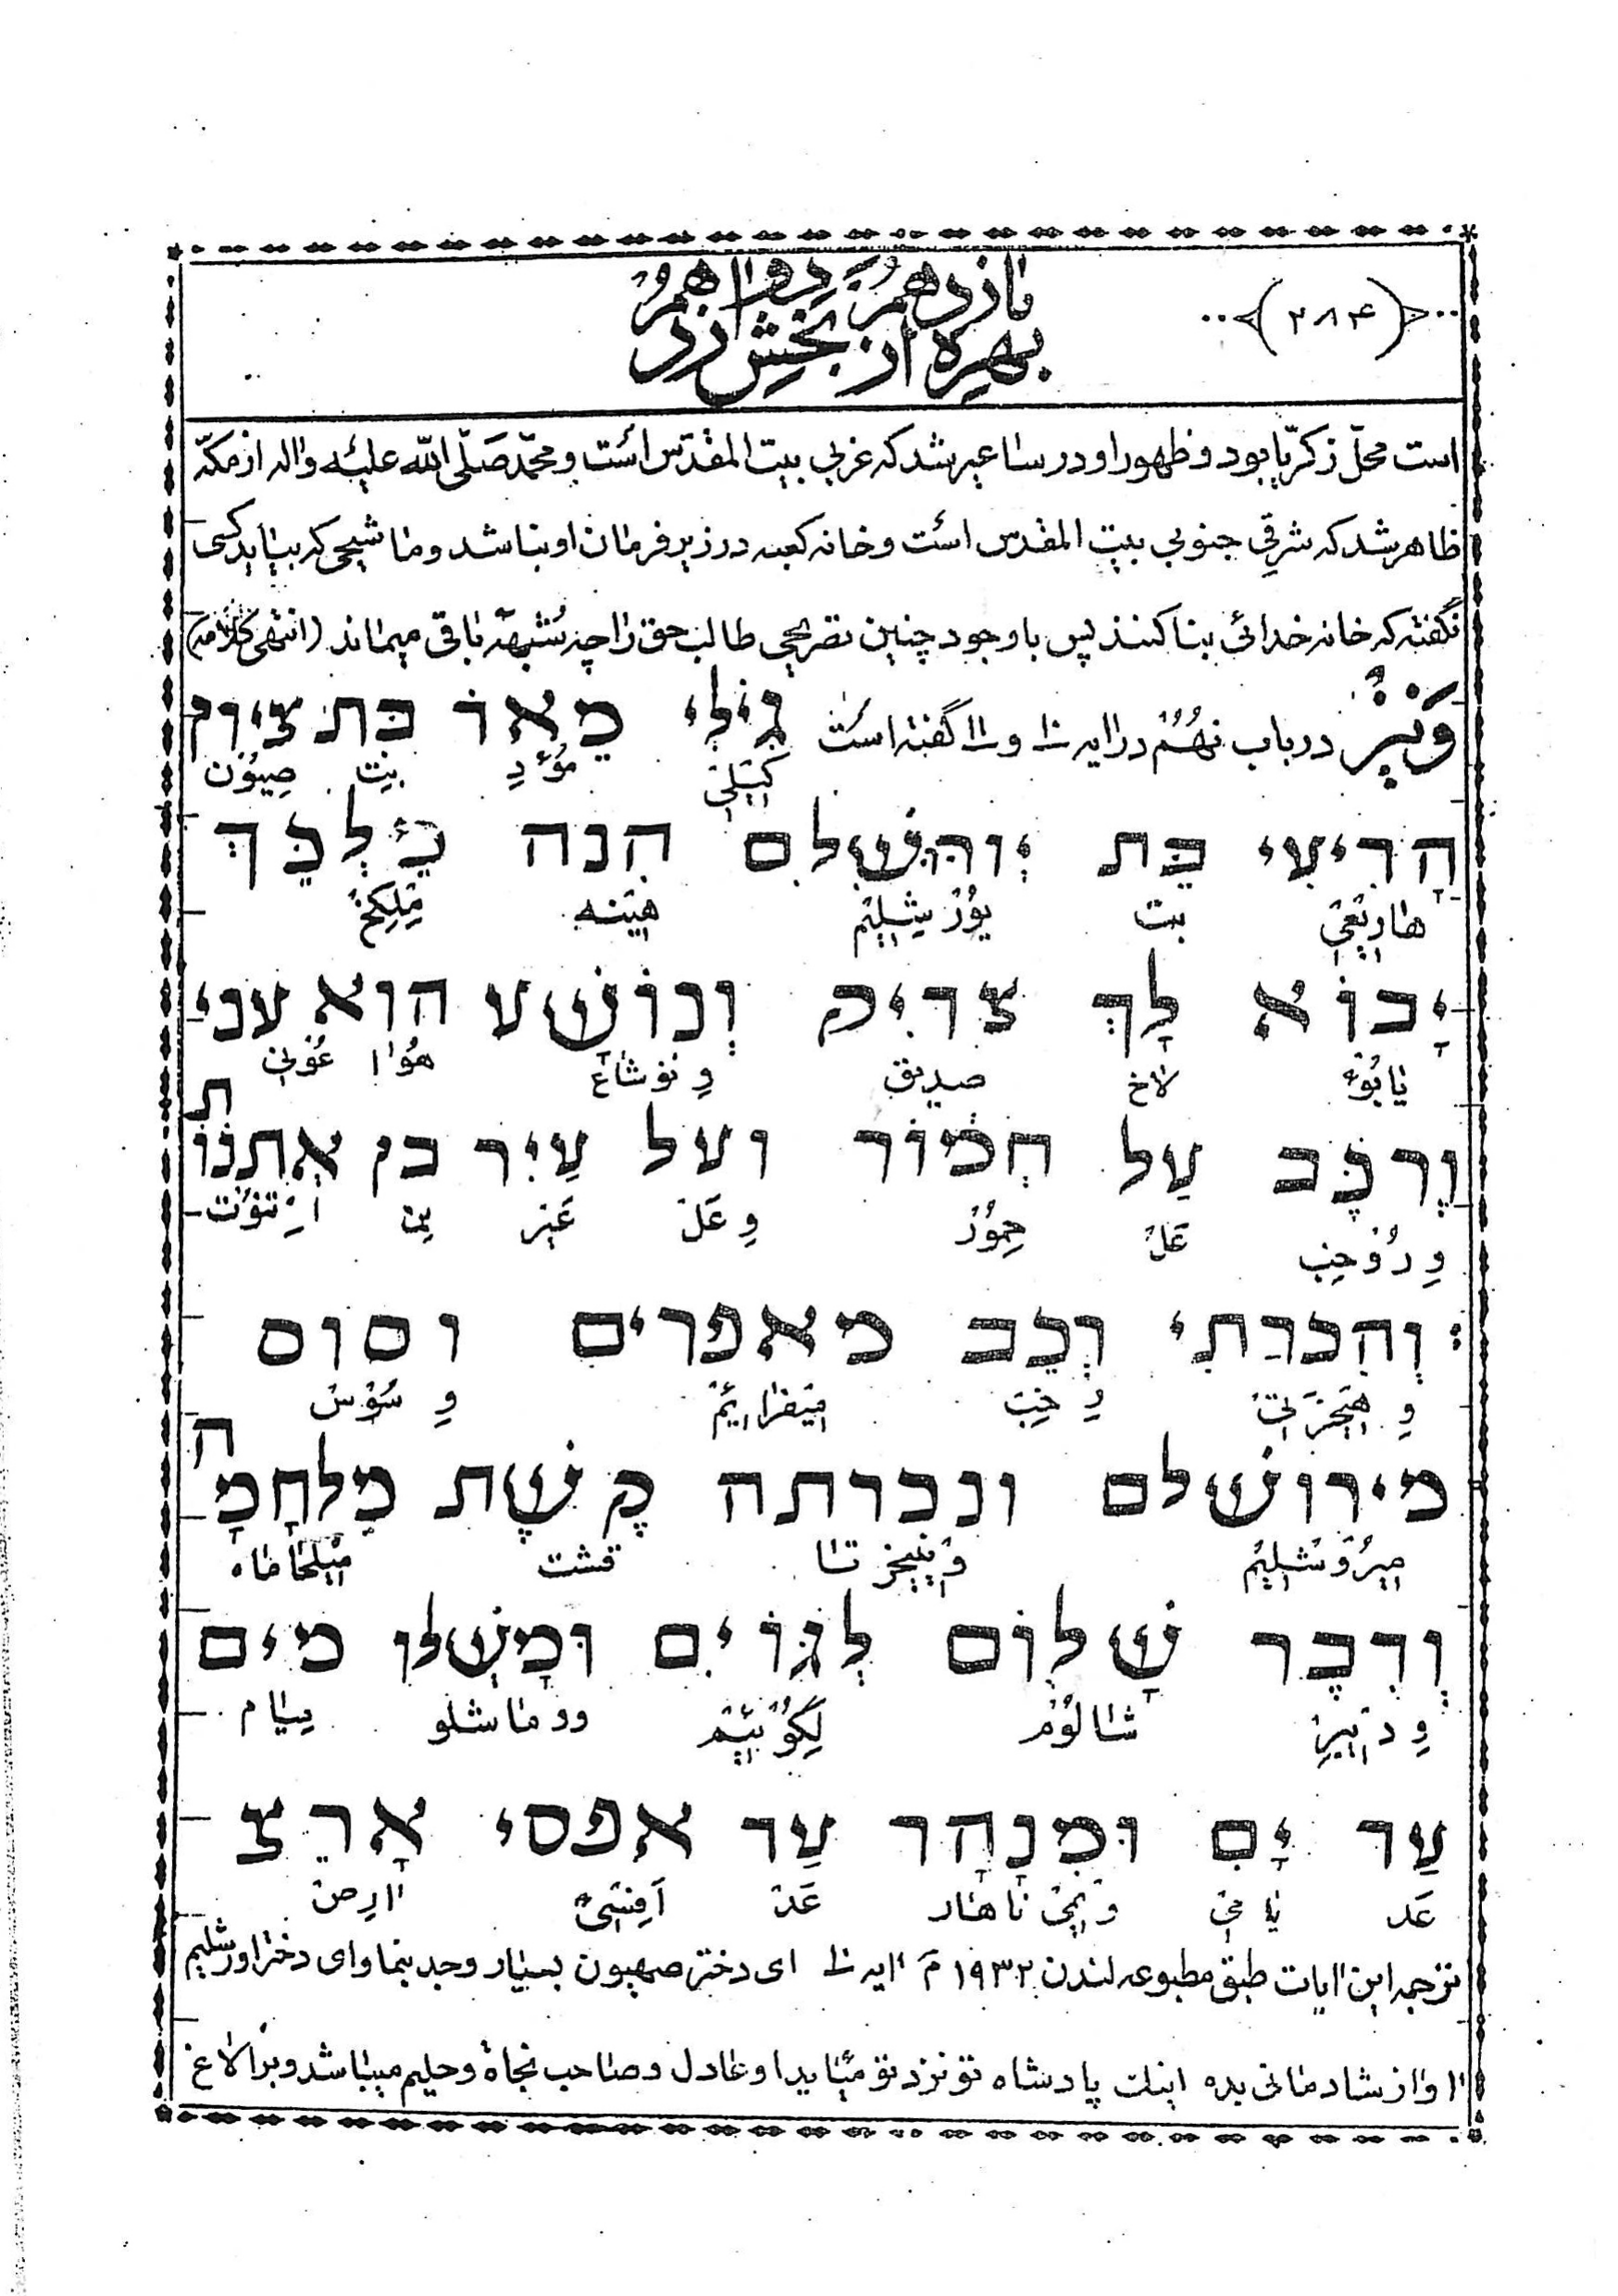 ﴿۲۸۴﴾
یازدهم دوازدهم
بهره از بخش
است محل زکریا بود و ظهور او در ساعیر شد که غربی بیت المقدس است و محمد صلی الله علیه واله از مکه
ظاهر شد که شرقی جنوبی بیت المقدس است و خانه کعبه در زیر فرمان او بنا شد و ماشیحی که بیاید کسی
نگفته که خانه خدائی بنا کنند پس با وجود چنین تصریحی طالب حق را چه شبهه باقی میماند (انتهی کلامه)
ونیز در باب نهم در ایه ۹ و ۱۰ گفته است גילי מאד בת ציון
گیلی مؤد بت صیون
הריעי בת ירושלם הנה מלכך
هاریعی بت یورشلیم هینه ملکخ
יבוא לך צדיק ונושע הוא עני
یابوء لاخ صدیق و نوشاع هوا عونی
ורכב על חמור ועל עיר בן אתנות
و روخب عل حمور و عل عیر بن ا تنوت
והכרתי רכב מאפרים וסוס
و هیخرتی رخب میفرایم و سوس
מירושלם ונכרתה קשת מלחמה
میروشلیم ونیخرتا قشت میلحاماه
ודבר שלום לגוים ומשלו מים
و دیبر شالوم لگوئیم وو ماشلو میام
עד ים ומנהר עד אפסי ארצ
عد یامی ومی ناهار عد افسی ارص
ترجمه این ایات طبق مطبوعه لندن ۱۹۳۲ م ایه ۹ ای دختر صهیون بسیار وجد بنما وای دختر اورشلیم
اواز شادمانی بده اینک پادشاه تو نزد تو میاید او عادل وصاحب نجاة وحلیم میباشد و بر الاغ